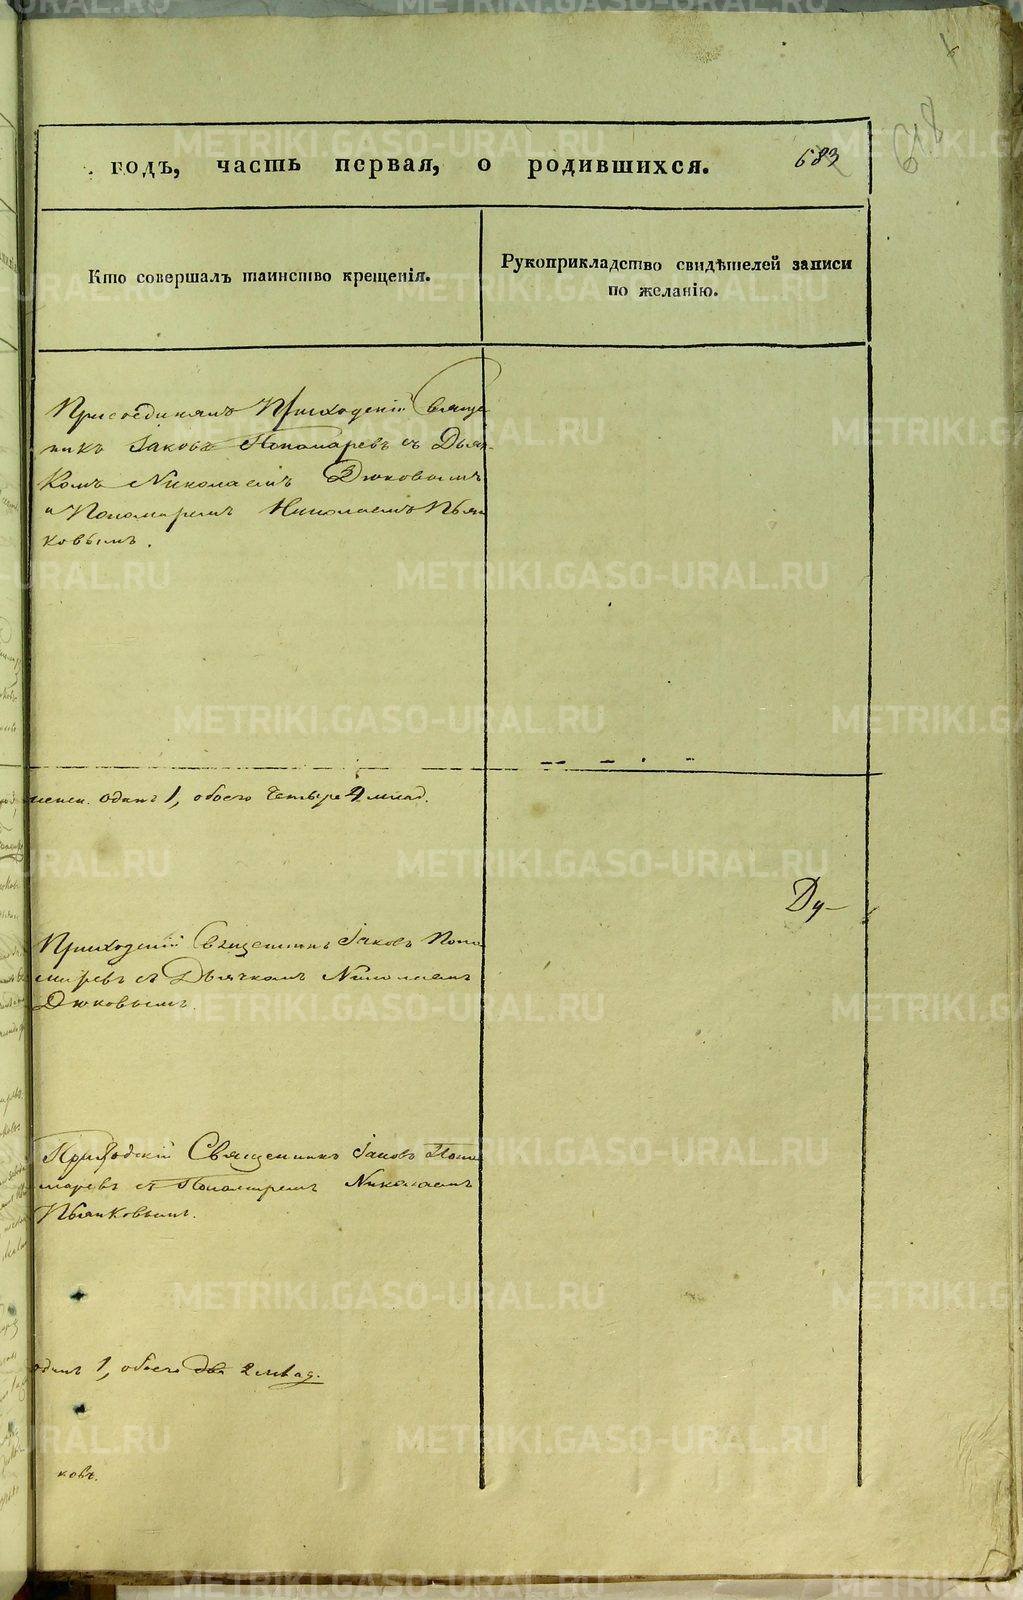 годъ, часть первая, о родившихся. 683
648
Кто совершалъ таинство крещенія.
Рукоприкладство свидѣтелей записи
по желанію.
Присоединялъ Приходскій Священ-
никъ Іаковъ Пономаревъ съ Дьяч-
комъ Николаемъ Дюковымъ
и Пономаремъ Николаемъ Пьян-
ковымъ.
женск. одинъ 1, обоего четыре 4 млад.
Ду-
Приходскій Священникъ Іаковъ Поно-
маревъ съ Дьячкомъ Николаемъ
Дюковымъ.
Приходскій Священникъ Іаковъ Поно-
маревъ съ Пономаремъ Николаемъ
Пьянковымъ.
одинъ 1, обоего два 2 млад.
ковъ.
METRIKI.GASO-URAL.RU